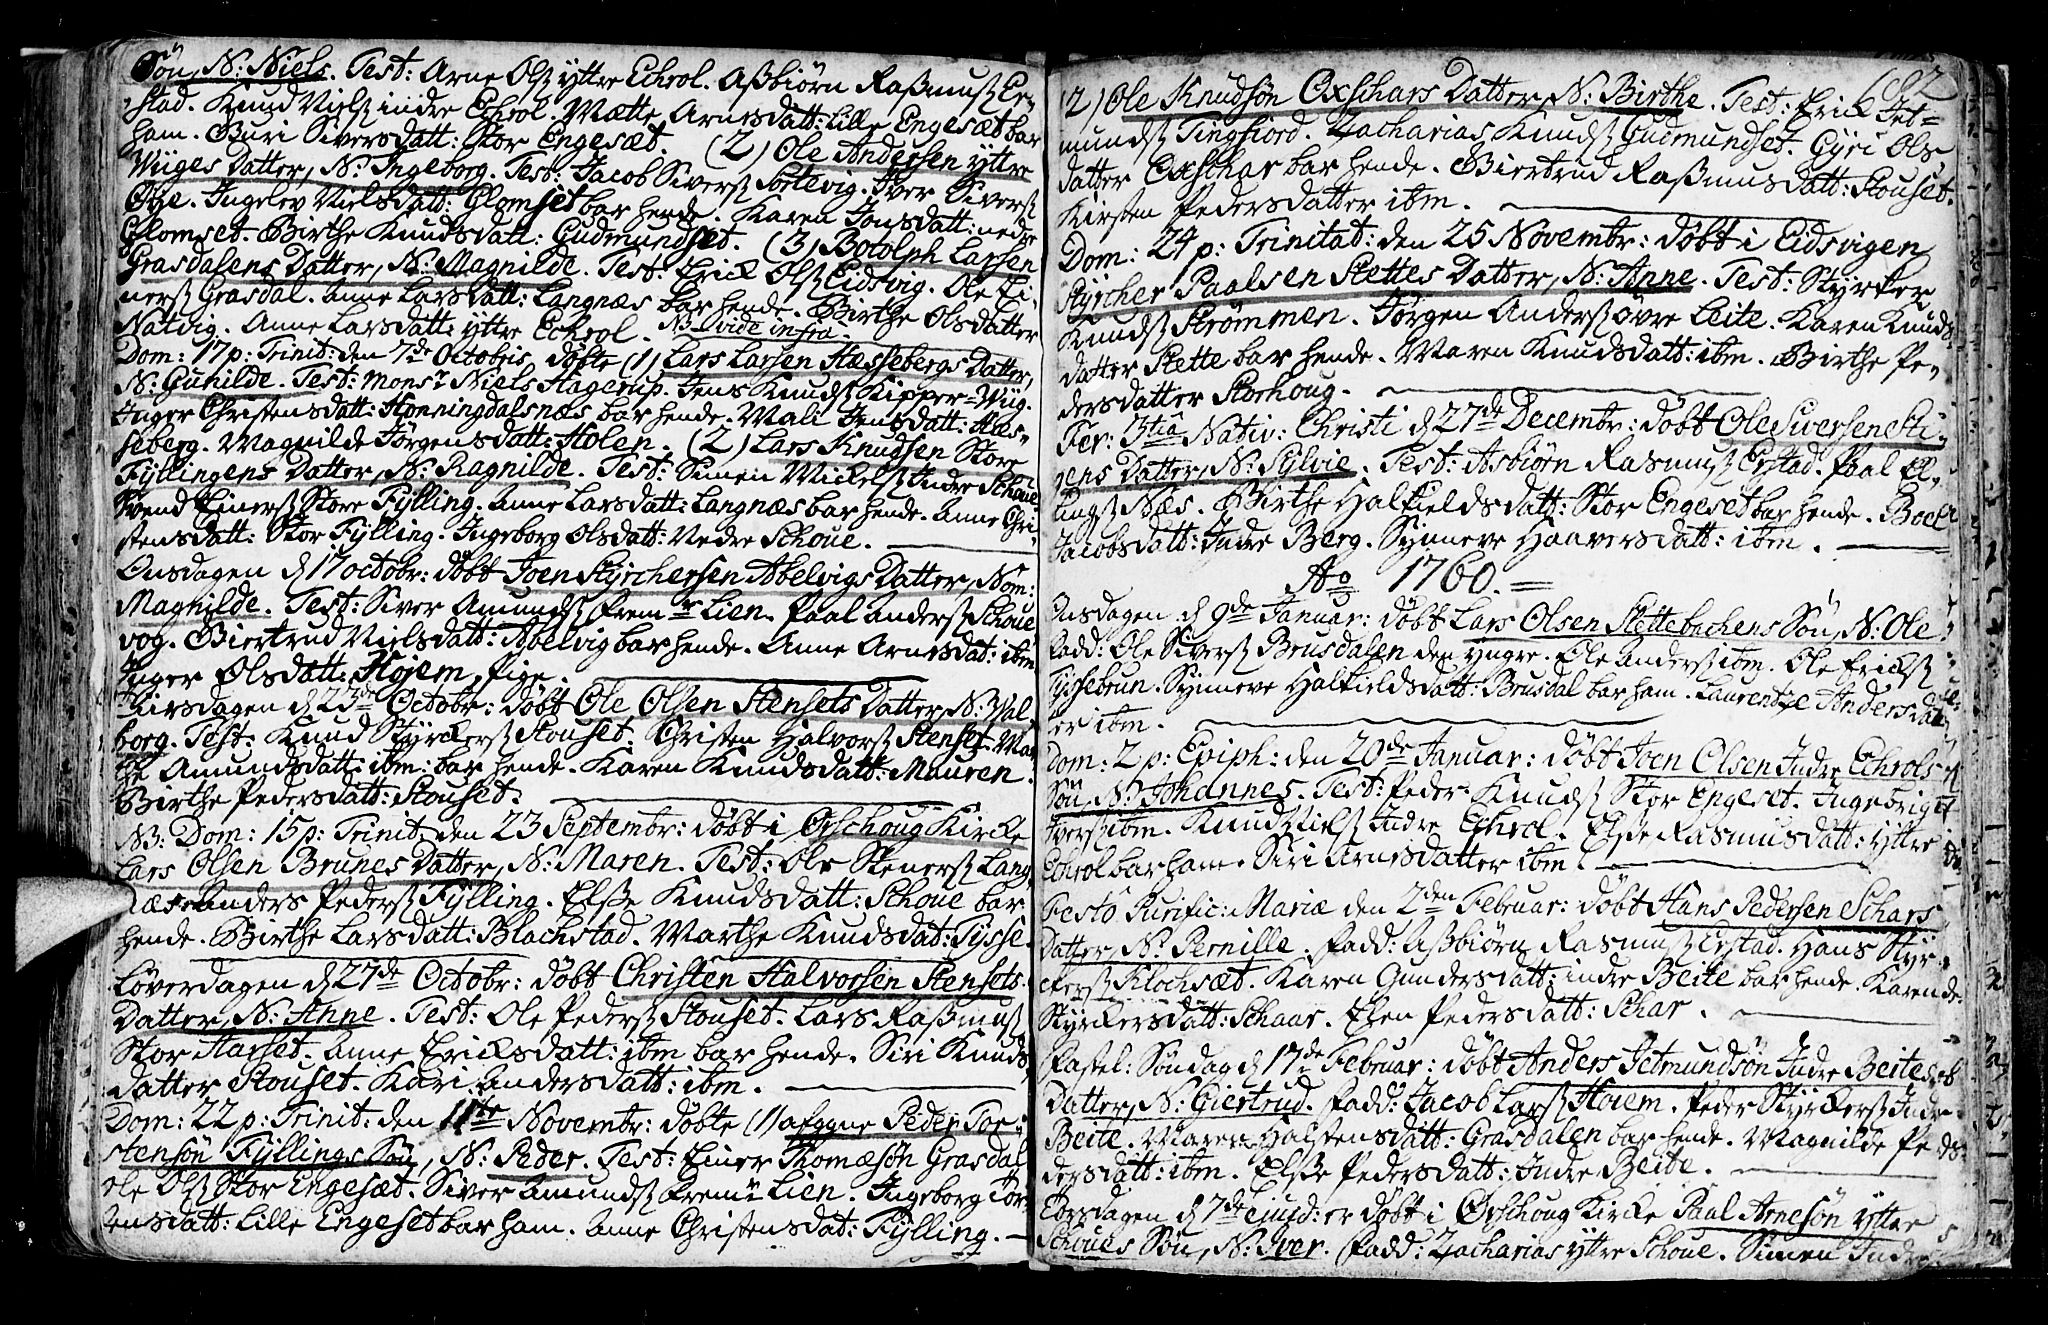 Søn, N: Niels. Test: Arne Olsß yttre Echrol. Aßbiørn Raßmusß Er-
stad. Knud Nielsß indre Echrol. Mætte Arnesdatt: Lille Engesæt bar
ham. Guri Siversdatt: Stor Engesæt. (2) Ole Andersen yttre
Wiiges Datter, N: Ingeborg. Test: Jacob Siversß Sortevig. Iver Siversß
Øye. Ingelev Nielsdatt: Glomset bar hende. Karen Jonsdatt: nedre
Glomset. Birthe Knudsdatt: Gudmundset. (3) Botolph Larsen
Grasdalens Datter, N: Magnilde. Test: Erick Olsß Eidsvig. Ole Ei-
nersß Grasdal. Anne Larsdatt: Langnæs bar hende. Birthe Olsdatter
Natvig. Anne Larsdatt: yttre Echrol. NB vide infra.
Dom: 17 p: Trinit: den 7de Octobris, døbte (1) Lars Larsen Hæssebergs Datter,
N: Gunilde. Test: Monsr Niels Hagerup. Jens Knudsß Kipper-Wiig.
Inger Christensdatt: Honningdalsnæs bar hende. Mali Jensdatt: Hæs-
seberg. Magnilde Jørgensdatt: Holen. (2) Lars Knudsen Store
Fyllingens Datter, N: Ragnilde. Test: Simen Mickelsß Indre Schoue
Svend Einersß Store Fylling. Anne Larsdatt: Langnæs bar hende. Anne Chri-
stensdatt: Stor Fylling. Ingeborg Olsdatt: Nedre Schoue.
Onsdagen d 17 Octobr: døbt Joen Styrchersen Abelvigs Datter, Nom:
Magnilde. Test: Siver Amundsß Fremre Lien. Paal Andersß Schoue
vog. Giertrud Nielsdatt: Abelvig bar hende. Anne Arnesdat: ibm
Inger Olsdatt: Hojem, pige.
Tirsdagen d 23de Octobr: døbt Ole Olsen Stensets Datter, N: Wal-
borg. Test: Knud Styrckersß Stouset. Christen Halvorsß Stenset. Mar-
the Amundsdatt: ibm: bar hende. Karen Knudsdatt: Mauren.
Birthe Pedersdatt: Stouset.
NB: Dom: 15 p: Trinit den 23 Septembr: døbt i Ørschoug Kircke
Lars Olsen Brunes Datter, N: Maren. Test: Ole Stenersß Lang
næs. Anders Pedersß Fylling. Elsße Knudsdatt: Schoue bar
hende. Birthe Larsdatt: Blachstad. Marthe Knudsdat: Tysse.
Løverdagen d 27de Octobr: døbt Christen Halvorsen Stensets
Datter, N: Anne. Test: Ole Pedersß Stouset. Lars Raßmusß
Stor Harset. Anne Ericksdatt: ibm bar hende. Siri Knuds
datter Stouset. Kari Andersdatt: ibm.
Dom: 22 p: Trinit: den 11te Novembr: døbte (1) afggne Peder Tor-
stensøn Fyllings Søn, N: Peder. Test: Einer Thomæsøn Grasdal
Ole Olsß Stor Engesæt. Siver Amundsß Fremre Lien. Ingeborg Tor-
ensdatt: Lille Engeset bar ham. Anne Christensdat: Fylling.
182
(2) Ole Knudsøn Oxschars Datter, N: Birthe. Test: Erick Jet-
mundsß Tingfiord. Zacharias Knudsß Gudmundset. Gyri Ols
datter Oxschar bar hende. Giertrud Raßmusdatt: Stouset.
Kirsten Pedersdatter ibm.
Dom: 24 p: Trinitat: den 25 Novembr: døbt i Eidsvigen
Styrcher Paalsen Stettes Datter, N: Anne. Test: Styrker
Knudsß Strømmen. Jørgen Andersß øvre Leite. Karen Knuds-
datter Stette bar hende. Maren Knudsdatt: ibm. Birthe Pe-
dersdatter Storhoug.
Fer: 3tiâ Nativ: Christi d 27de Decembr: døbt Ole Siversen Sti-
gens Datter, N: Sylvie. Test: Asbiørn Rasmusß Erstad. Paal El-
lingsß Næs. Birthe Halfieldsdatt: Stor Engeset bar hende. Boel
Jacobsdatt: Indre Berg. Synneve Haaversdatt: ibm.
Ao 1760.
Onsdagen d 9de Januar: døbt Lars Olsen Stettebachens Søn, N: Ole
Fadd: Ole Siversß Brusdalen den yngre. Ole Andersß ibm. Ole Ericksß
Tyssebrun. Synneve Halfieldsdatt: Brusdal bar ham. Laurentze Andersdat-
er ibm.
Dom: 2 p: Epiph: den 20de Januar: døbt Joen Olsen Indre Echrols
Søn, N: Johannes. Test: Peder Knudsß Stor Engeset. Ingebriget
Iversß ibm. Knud Nielsß Indre Echrol. Elsße Rasmusdatt: yttre
Echrol bar ham. Siri Arnesdatter ibm.
Festo Purific: Mariæ den 2den Februar: døbt Hans Pedersen Schars
Datter, N: Pernille. Fadd: Aßbiørn Rasmusß Erstad. Hans Styr-
ckersß Klochsæt. Karen Gundersdatt: indre Beite bar hende. Karen
Styrckersdatt: Schaar. Elen Pedersdatt: Schar.
Fastel: Søndag d 17de Februar: døbt Anders Jetmundsøn Indre Beite
Datter, N: Giertrud. Fadd: Jacob Larsß Hoiem. Peder Styrckersß Indre
Beite. Maren Halstensdatt: Grasdalen bar hende. Magnilde Pe-
dersdatt: ibm. Elsße Pedersdatt: Indre Beite.
Torsdagen d 7de ejusd: er døbt i Ørschoug Kircke Paal Arnesøn yttre
Schoues Søn, N: Iver. Fadd: Zacharias yttre Schoue. Simen Indre